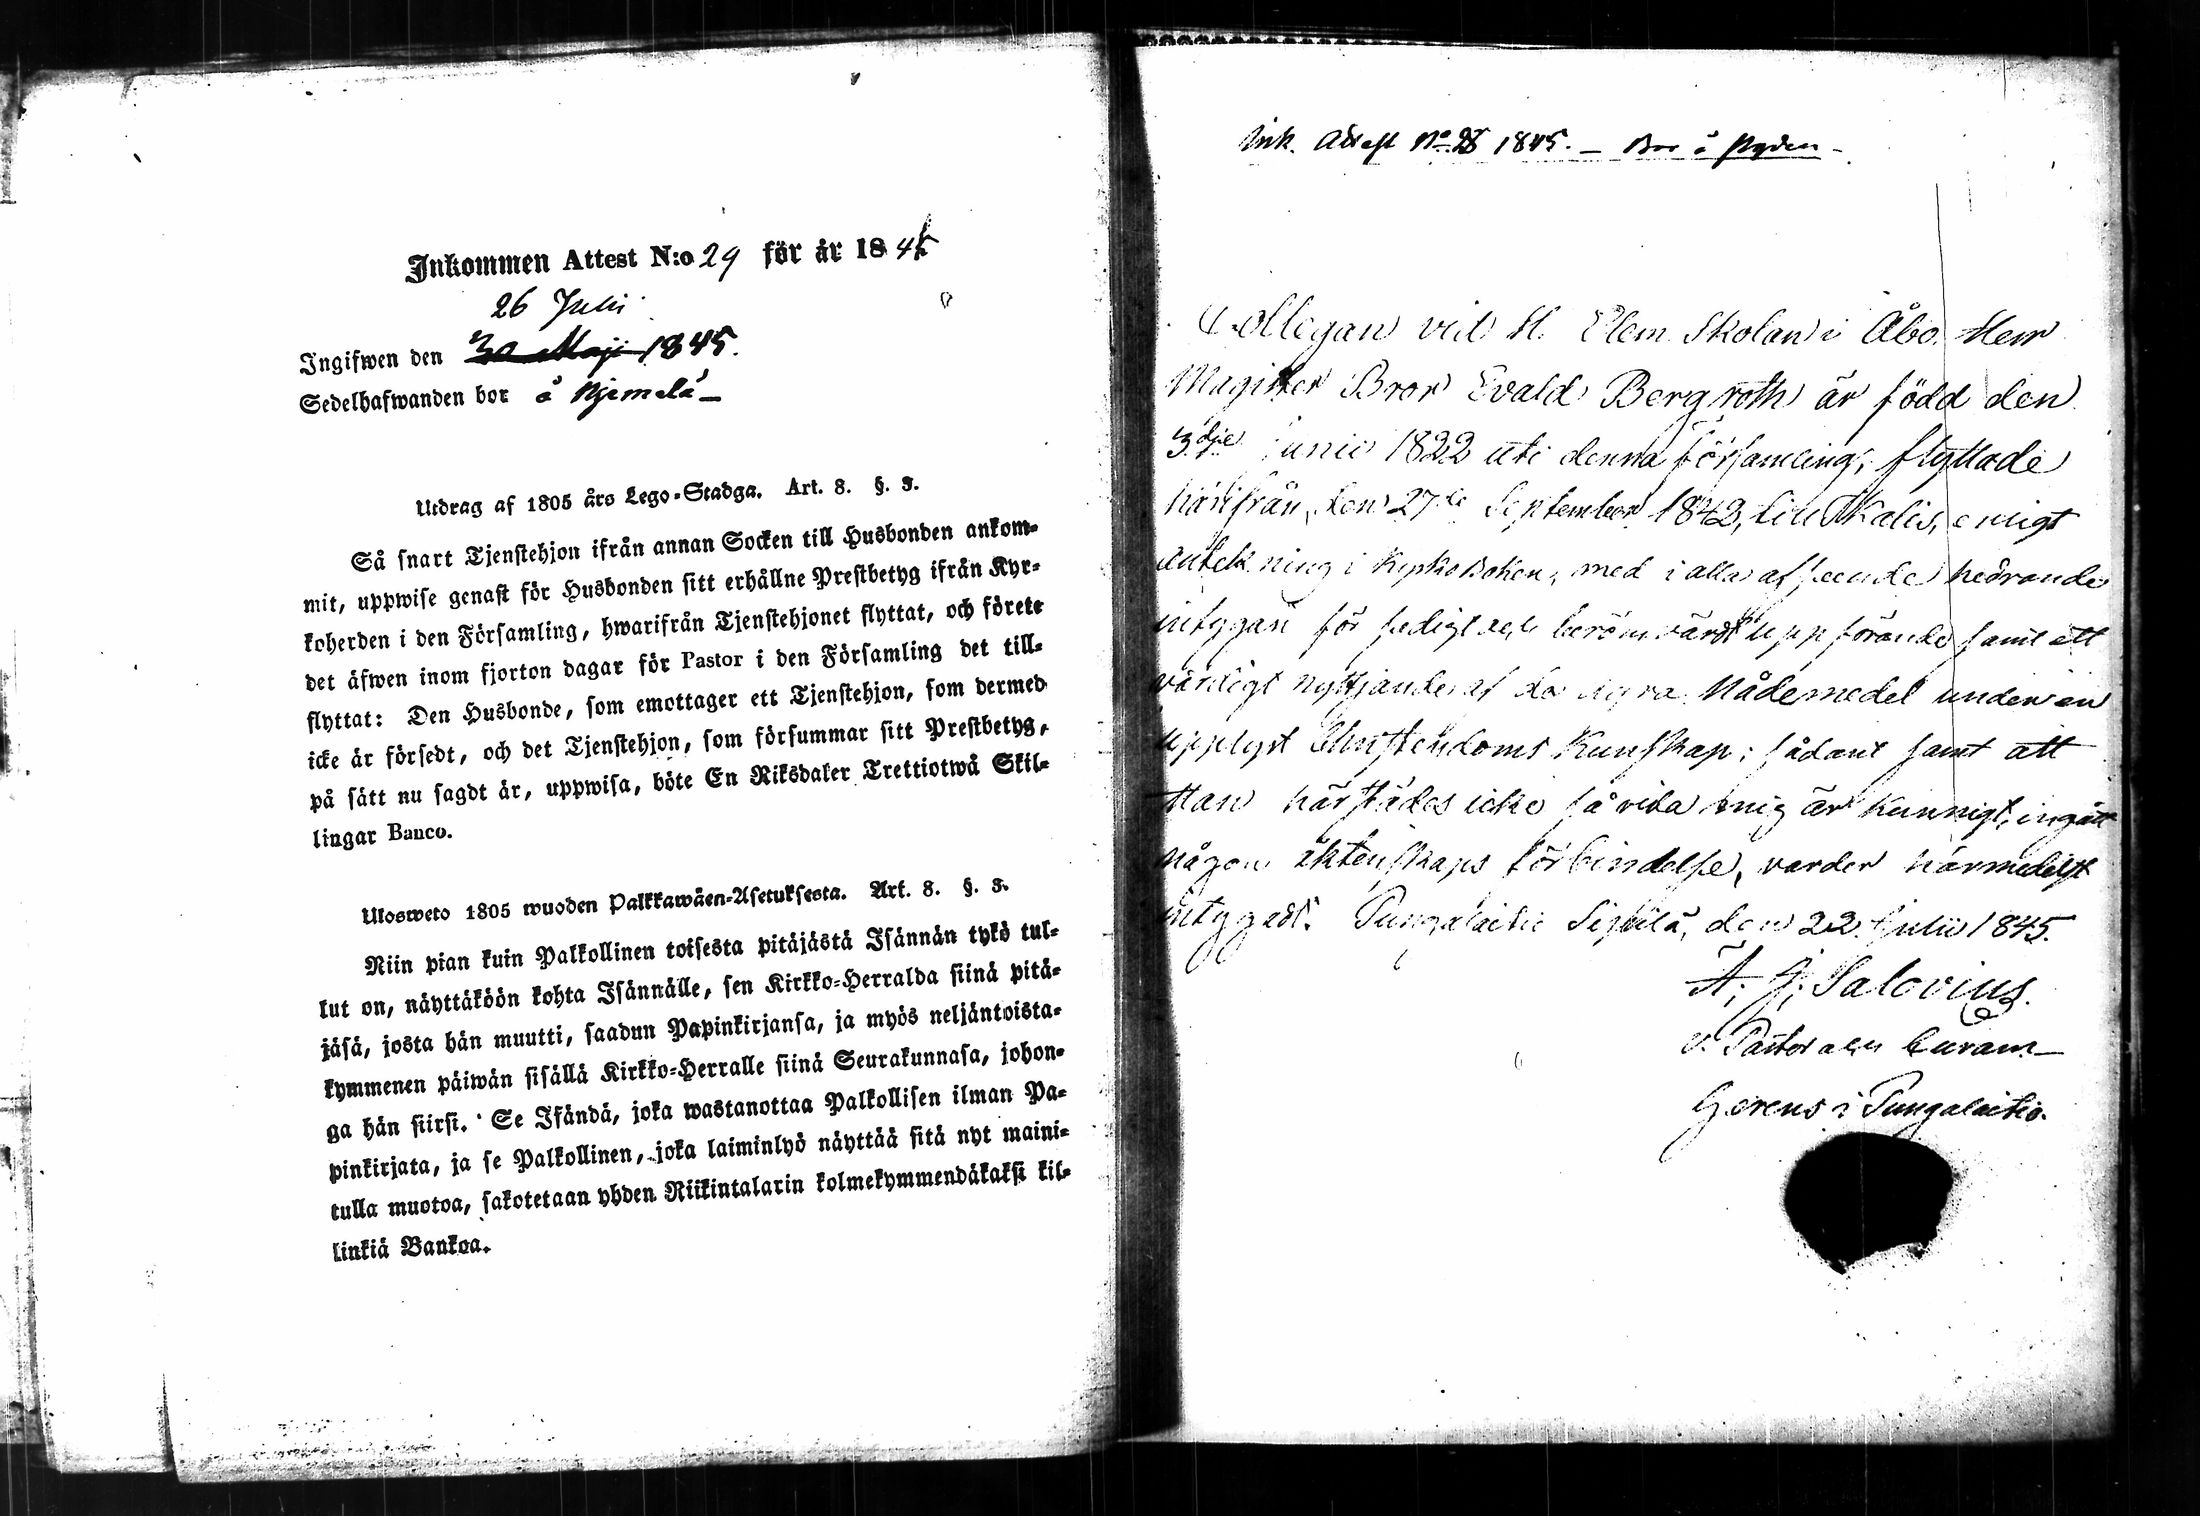 Inkommen Attest N:o 29 för år 1845
26 Julii
Ingifwen den 30 Maji 1845.
Sedelhafwanden bor å Njemelä
Utdrag af 1805 års Lego-Stadga. Art. 8. §. 3.
Så snart Tjenstehjon ifrån annan Socken till Husbonden ankom-
mit, uppwise genast för Husbonden sitt erhållne Prestbetyg ifrån Kyr-
koherden i den Församling, hwarifrån Tjenstehjonet flyttat, och förete
det äfwen inom fjorton dagar för Pastor i den Församling det till-
flyttat: Den Husbonde, som emottager ett Tjenstehjon, som dermed
icke är försedt, och det Tjenstehjon, som försummar sitt Prestbetyg,
på sätt nu sagdt är, uppwisa, böte En Riksdaler Trettiotwå Skil-
lingar Banco.
Ulosweto 1805 wuoden Palkkawäen-Asetuksesta. Art. 8. §. 3.
Niin pian kuin Palkollinen toisesta pitäjästä Isännän tykö tul-
lut on, näyttäköön kohta Isännälle, sen Kirkko-Herralda siinä pitä-
jäsä, josta hän muutti, saadun Papinkirjansa, ja myös neljäntoista-
kymmenen päiwän sisällä Kirkko-Herralle siinä Seurakunnasa, johon-
ga hän siirsi. Se Isändä, joka wastanottaa Palkollisen ilman Pa-
pinkirjata, ja se Palkollinen, joka laiminlyö näyttää sitä nyt maini-
tulla muotoa, sakotetaan yhden Riikintalarin kolmekymmendäkaksi kil-
linkiä Bankoa.
Ink. Attest No 28 1845. – Bor å
Collegan vid H. Elem. Skolan i Åbo, Herr
Magister Bror Evald Bergroth är född den
3dje Junii 1822 uti denna församling, flyttade
härifrån den 27de September 1842, till Ikalis, enligt
antekning i Kyrkoboken, med i alla afseende hedrande
intygan för sedigt och berömvärdt uppförande samt ett
värdigt nyttjande af de dyra Nådemedel under en
upplyst Christendoms Kunskap; sådant samt att
Han härstädes icke så vida mig är kunnigt, ingått
någon äktenskaps förbindelse, varder härmedelst
intygadt. Pungalaitio den 22 Julii 1845.
A. J. Salovius.
v. Pastor Curam
Gerens i Pungalaitio.